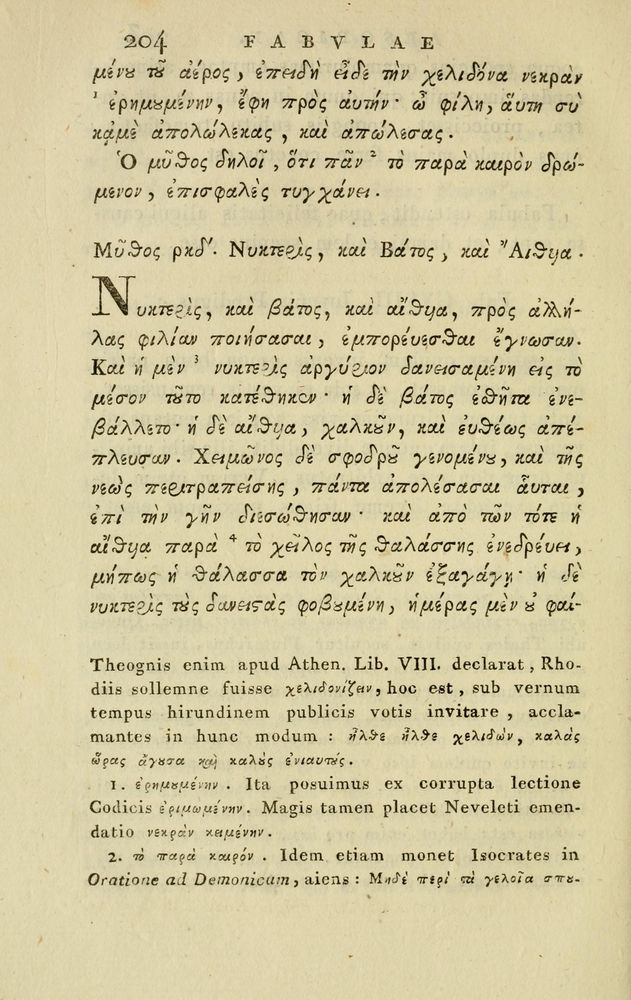 204 FABVLAE
μένου τοῦ ἀέρος, ἐπειδὴ εἶδε τὴν χελιδόνα νεκρὰν
¹ ἐρημουμένην, ἔφη πρὸς αὐτήν· ὦ φίλη, αὕτη σὺ
κᾀμὲ ἀπολώλεκας, καὶ ἀπώλεσας.
Ὁ μῦθος δηλοῖ, ὅτι πᾶν ² τὸ παρὰ καιρὸν δρώ-
μενον, ἐπισφαλὲς τυγχάνει.
Μῦθος ρκδʹ. Νυκτερὶς, καὶ Βάτος, καὶ Ἄιθυα.
Νυκτερὶς, καὶ βάτος, καὶ αἴθυα, πρὸς ἀλλή-
λας φιλίαν ποιήσασαι, ἐμπορεύεσθαι ἔγνωσαν.
Καὶ ἡ μὲν ³ νυκτερὶς ἀργύριον δανεισαμένη εἰς τὸ
μέσον τοῦτο κατέθηκεν· ἡ δὲ βάτος ἐσθῆτα ἐνε-
βάλλετο· ἡ δὲ αἴθυα, χαλκοῦν, καὶ εὐθέως ἀπέ-
πλευσαν. Χειμῶνος δὲ σφοδροῦ γενομένου, καὶ τῆς
νεὼς περιτραπείσης, πάντα ἀπολέσασαι αὗται,
ἐπὶ τὴν γῆν διεσώθησαν· καὶ ἀπὸ τῶν τότε ἡ
αἴθυα παρὰ ⁴ τὸ χεῖλος τῆς θαλάσσης ἐνεδρεύει,
μήπως ἡ θάλασσα τὸν χαλκοῦν ἐξαγάγῃ· ἡ δὲ
νυκτερὶς τοὺς δανειστὰς φοβουμένη, ἡμέρας μὲν οὐ φαί-
Theognis enim apud Athen. Lib. VIII. declarat, Rho-
diis sollemne fuisse χελιδονίζειν, hoc est, sub vernum
tempus hirundinem publicis votis invitare, accla-
mantes in hunc modum: ἦλθε ἦλθε χελιδὼν, καλὰς
ὥρας ἄγουσα καὶ καλοὺς ἐνιαυτούς.
1. ἐρημουμένην. Ita posuimus ex corrupta lectione
Codicis ἐριμωμένην. Magis tamen placet Neveleti emen-
datio νεκρὰν κειμένην.
2. τὸ παρὰ καιρόν. Idem etiam monet Isocrates in
Oratione ad Demonicum, aiens: Μηδὲ περὶ τὰ γελοῖα σπου-